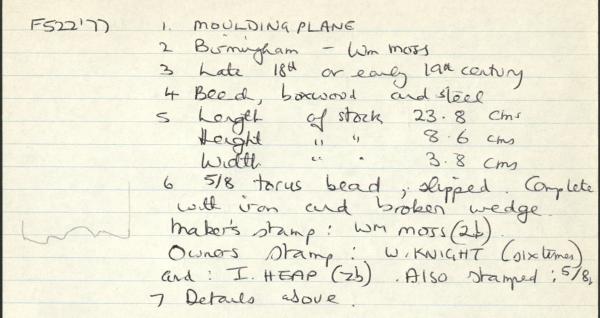 F522'77 1. MOULDING PLANE
2 Birmingham – Wm Moss
3 Late 18th or early 19th century
4 Beech, boxwood and steel
5 Length of stock 23.8 cms
Height " " 8.6 cms
Width " " 3.8 cms
6 5/8 torus bead, slipped. Complete
with iron and broken wedge.
Maker's stamp: Wm Moss (2b).
Owners stamp: W. KNIGHT (six times)
and: I. HEAP (2b). Also stamped: 5/8.
7 Details above.